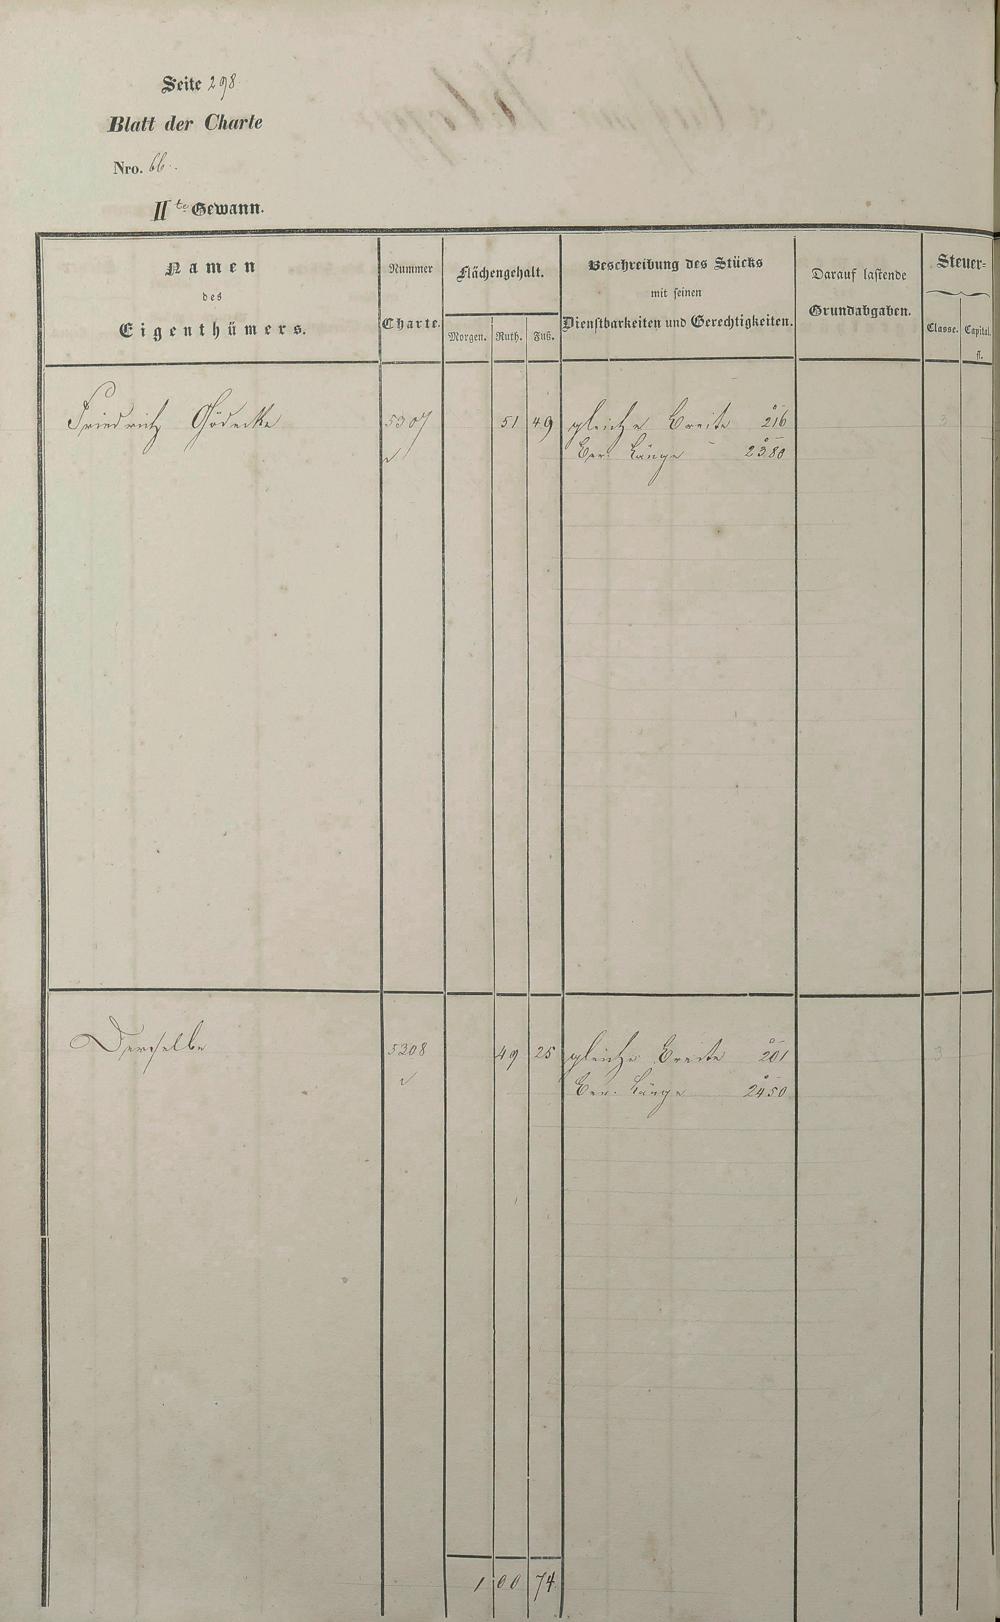 Seite 298
Blatt der Charte
Nro. 66.
II te Gewann.
Namen des Eigenthümers.
Nummer Charte.
Flächengehalt.
Morgen. Ruth. Fuß.
Beschreibung des Stücks mit seinen Dienstbarkeiten und Gerechtigkeiten.
Darauf lastende Grundabgaben.
Steuer=
Classe. Capital. fl.
Friedrich Gödecke 5307 51 49 gleiche Breite 216 3
Ber. Länge 2380
Derselbe 5308 49 25 gleiche Breite 201 3
Ber. Länge 2450
1 00 74